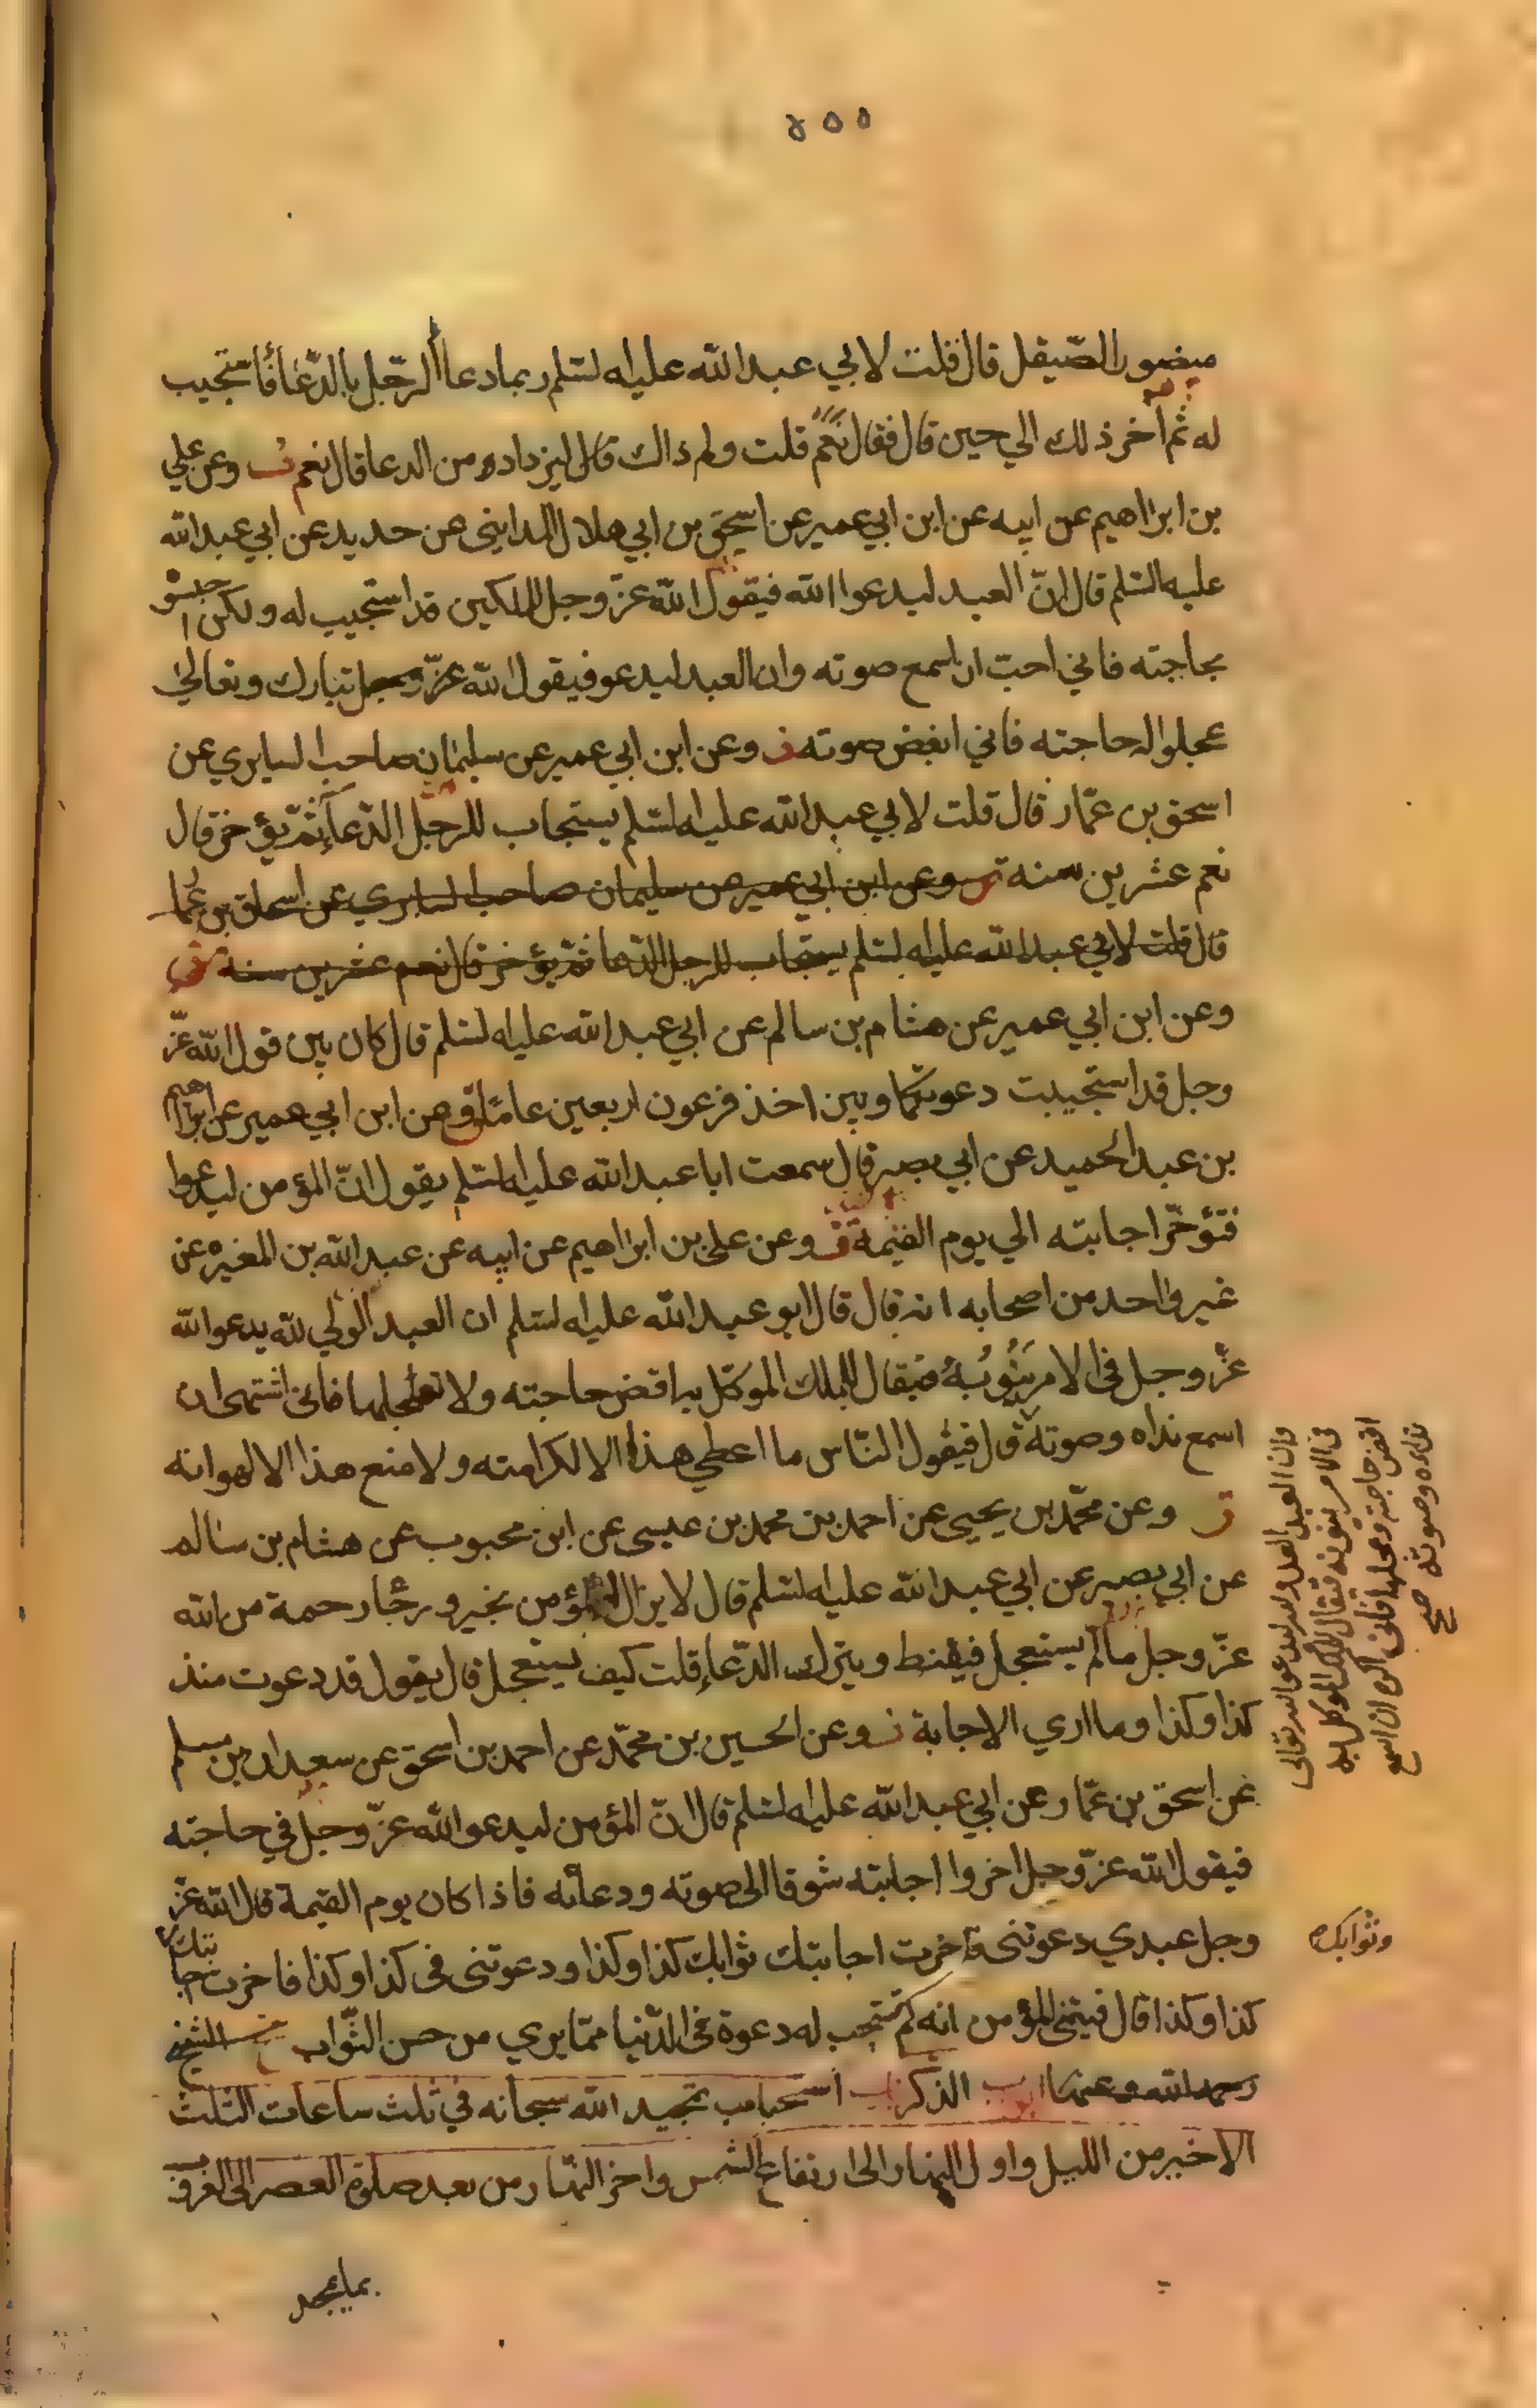 ٥٥٥
منصور الصّيقل قال قلت لابي عبد الله عليه السّلم ربما دعا الرّجل بالدّعا فأستجيب
له ثم آخر ذلك الي حين قال فقال نَعَم قلت ولم ذاك قال ليزداد من الدعا قال نعم وعن علي
بن ابراهيم عن ابيه عن ابن ابي عمير عن اسحق بن ابي هلال المدايني عن حديد عن ابي عبد الله
عليه السّلم قال انّ العبد ليدعوا الله فيقول الله عزّ وجل للملكين قد استجيب له ولكن احبسوه
بحاجته فاني احبّ ان اسمع صوته وان العبد ليدعو فيقول الله عزّ وجل تبارك وتعالي
عجلوا له حاجته فاني ابغض صوته وعن ابن ابي عمير عن سليمان صاحب السابري عن
اسحق بن عمّار قال قلت لابي عبد الله عليه السّلم يستجاب للرجل الدّعاء ثمّ يؤخر قال
نعم عشرين سنه وعن ابن ابي عمير عن سليمان صاحب السابري عن اسحاق بن عمار
قال قلت لابي عبد الله عليه السّلم يستجاب للرجل الدّعا ثمّ يؤخر قال نعم عشرين سنه
وعن ابن ابي عمير عن هشام بن سالم عن ابي عبد الله عليه السّلم قال كان بين قول الله عزّ
وجل قد استجيبت دعوتكما وبين اخذ فرعون اربعين عامًا وعن ابن ابي عمير عن ابراهيم
بن عبد الحميد عن ابي بصير قال سمعت ابا عبد الله عليه السّلم يقول انّ المؤمن ليدعوا
فتؤخّر اجابته الي يوم القيمة وعن علي بن ابراهيم عن ابيه عن عبد الله بن المغيره عن
غير واحد من اصحابه انه قال قال ابو عبد الله عليه السّلم ان العبد الولي لله يدعو الله
عزّ وجل في الامر يَنُوبُهُ فيقال للملك الموكّل به اقض حاجته ولا تعجلها فاني اشتهي ان
اسمع نداه وصوته قال فيقول النّاس ما اعطي هذا الا لكرامته ولا منع هذا الا لهوانه
وعن محمّد بن يحيى عن احمد بن محمد بن عيسى عن ابن محبوب عن هشام بن سالم
عن ابي بصير عن ابي عبد الله عليه السّلم قال لا يزال المؤمن بخير ورجًا رحمة من الله
عزّ وجل ما لم يستعجل فيقنط ويترك الدّعاء قلت كيف يستعجل قال يقول قد دعوت منذ
كذا وكذا وما اري الاجابة وعن الحسين بن محمّد عن احمد بن اسحق عن سعدان بن مسلم
عن اسحق بن عمّار عن ابي عبد الله عليه السّلم قال انّ المؤمن ليدعو الله عزّ وجل في حاجته
فيقول الله عزّ وجل اخروا اجابته شوقا الى صوته ودعائه فاذا كان يوم القيمة قال الله عزّ
وجل عبدي دعوتنى فاخرت اجابتك ثوابك كذا وكذا ودعوتنى فى كذا وكذا فاخرت اجابتك
كذا وكذا قال فيتمنى المؤمن انه لم تستجب له دعوة في الدّنيا ممّا يري من حسن الثّواب الشيخ
رحمه الله وعنهما ابواب الذكر باب استحباب تمجيد الله سبحانه في ثلث ساعات الثلث
الاخير من الليل واول النهار الى ارتفاع الشمس واخر النّهار من بعد صلوة العصر الى الغروب
وان العبد العدو لله ليدعو الله تعالى
فى الامر ينوبه فيقال للملك الموكل به
اقض حاجته وعجلها فانى اكره ان اسمع
نداءه وصوته صح
وثوابك